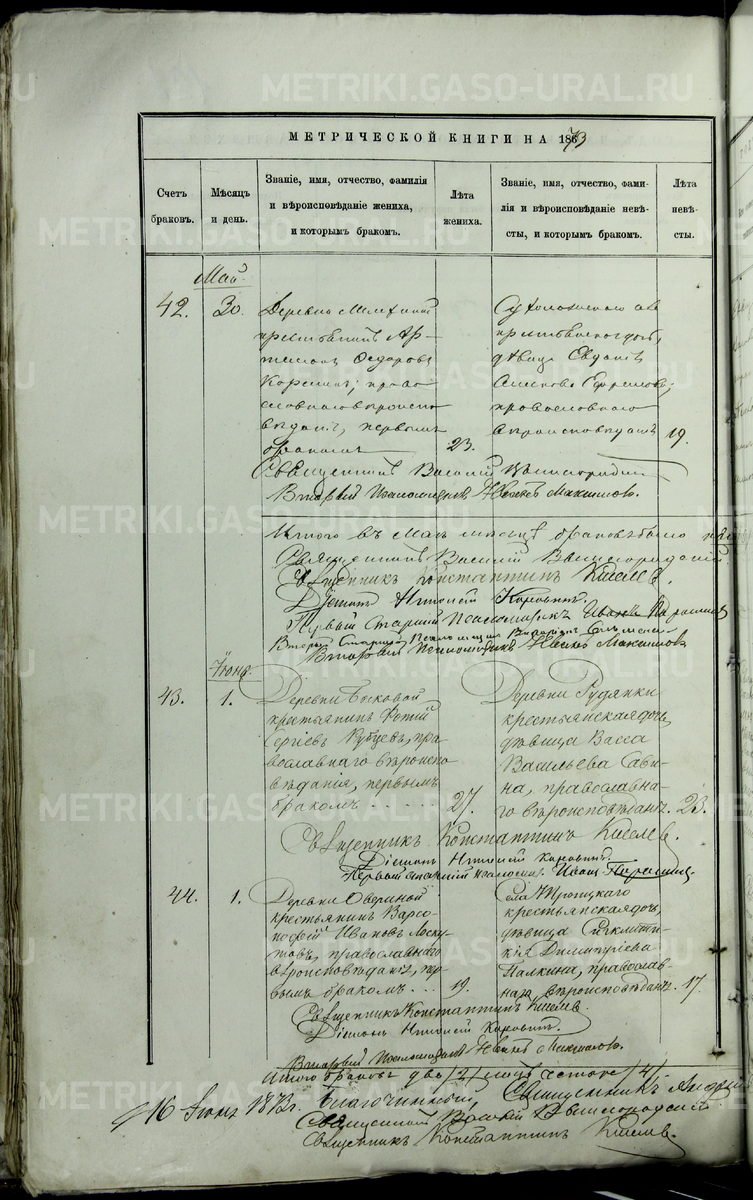 METRIKI.GASO-URAL.RU
МЕТРИЧЕСКОЙ КНИГИ НА 1873
Счетъ браковъ.
Мѣсяцъ и день.
Званіе, имя, отчество, фамилія
и вѣроисповѣданіе жениха,
и которымъ бракомъ.
Лѣта жениха.
Званіе, имя, отчество, фами-
лія и вѣроисповѣданіе невѣ-
сты, и которымъ бракомъ.
Лѣта невѣ-
сты.
Май
42. 30.
Деревни
крестьянинъ Ар-
темонъ Ѳедоровъ
право
славнаго вѣроиспо
вѣданія, первымъ
бракомъ
23.
крестьянская дочь,
дѣвица Евдокія
Ефремова,
православнаго
вѣроисповѣданія
19.
Священникъ Василій Вышегородскій
Вторый Псаломщикъ Максимовъ.
Итого въ Маѣ мѣсяцѣ браковъ было
Священникъ Василій Вышегородскій
Священникъ Константинъ Киселевъ.
Діаконъ Коровинъ.
Первый Старшій Псаломщикъ Иванъ
Второй Старшій Псаломщикъ
Вторый Псаломщикъ Максимовъ
Іюнь
43. 1.
Деревни Быковой
крестьянинъ Фотій
Сергіевъ Кубцевъ, пра
вославнаго вѣроиспо
вѣданія, первымъ
бракомъ
27.
Деревни Рудянки
крестьянская дочь,
дѣвица Васса
Васильева Сави-
на, православна-
го вѣроисповѣданія.
23.
Священникъ Константинъ Киселевъ.
Діаконъ Коровинъ.
Первый старшій псаломщ. Иванъ
44. 1.
Деревни Овериной
крестьянинъ Варсо-
нофій Ивановъ Лоску
товъ, православнаго
вѣроисповѣданія, пер-
вымъ бракомъ
19.
Села Троицкаго
крестьянская дочь,
дѣвица Синклити-
кія Димитріева
Палкина, православ-
наго вѣроисповѣданія.
17.
Священникъ Константинъ Киселевъ.
Діаконъ Коровинъ.
Вторый Псаломщикъ Максимовъ.
Итого браковъ два /2/
16 Іюня 1873 г. Благочинный, Священникъ Андрей
Священникъ Василій Вышегородскій
Священникъ Константинъ Киселевъ.